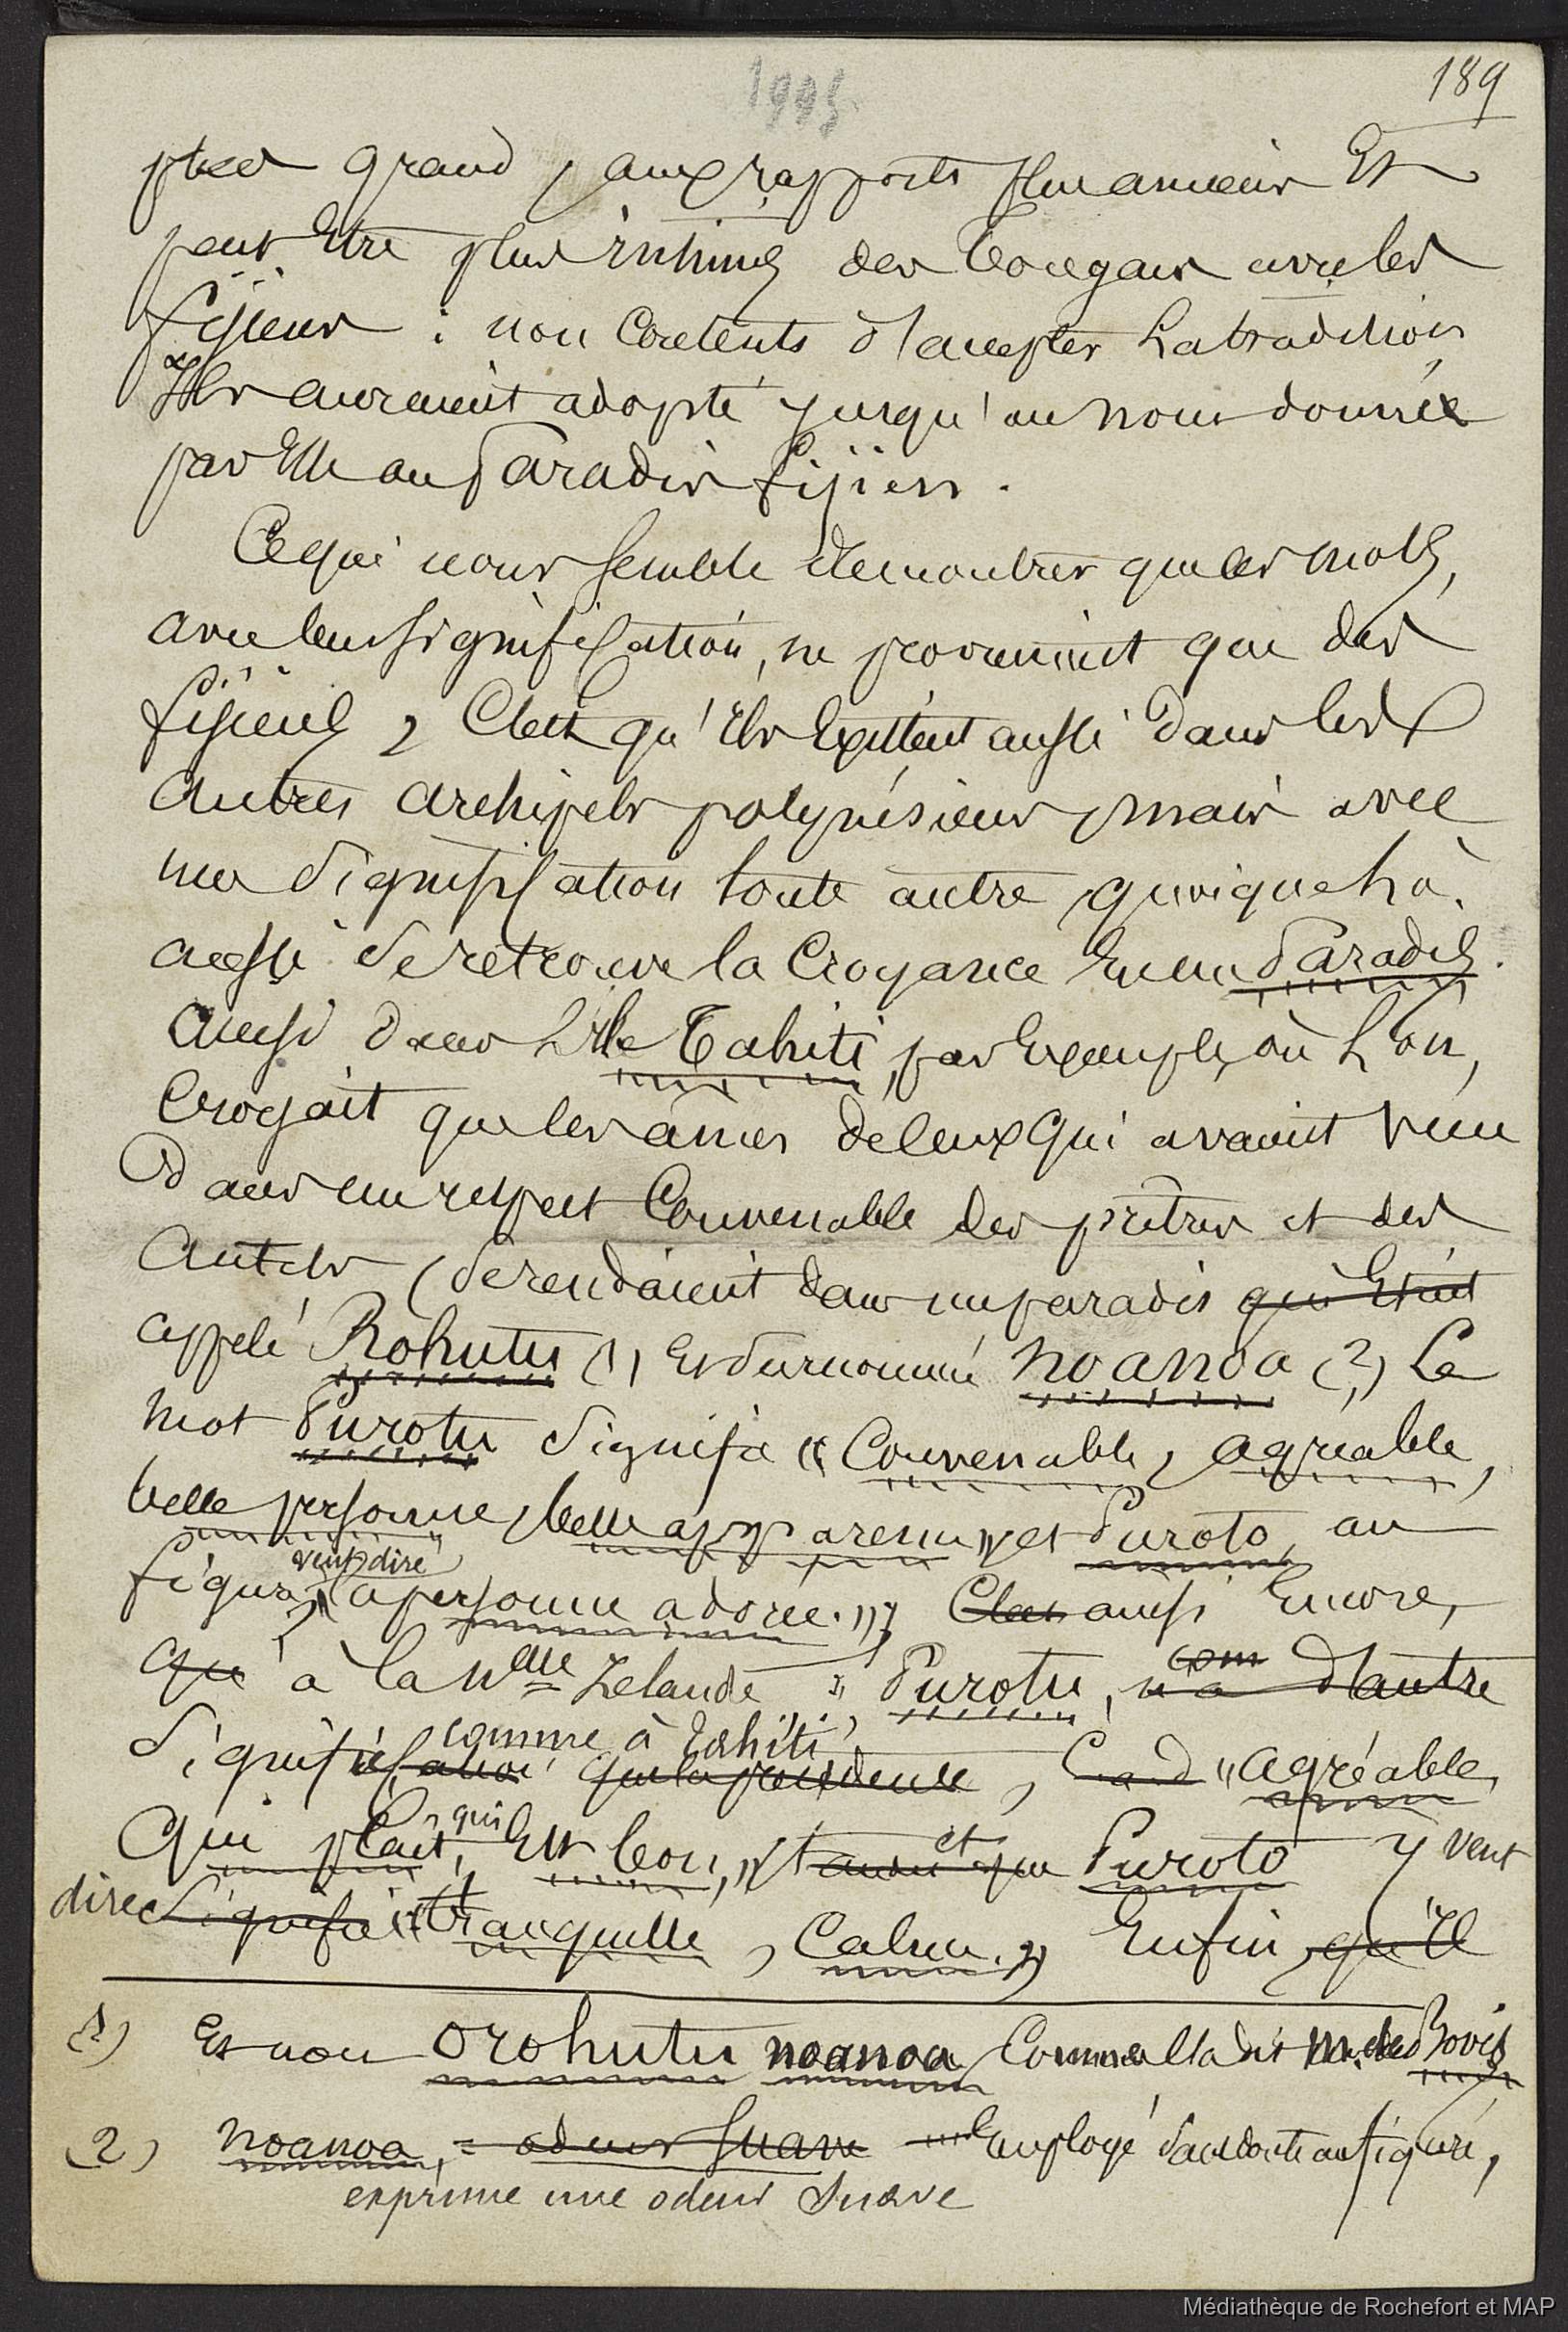 1995
189
plus grand, aux rapports plus anciens Et
peut Etre plus intimes des Tongans avec les
fijiens : non Contents d'accepter La tradition,
Ils auraient adopté jusqu'au nom donné
par Elle au Paradis fijien.
Ce qui nous semble démontrer que les mots,
avec leur signification, ne provenaient que des
fijiens, C'est qu'Ils Existent aussi dans les
autres archipels polynésiens, mais avec
une signification toute autre, quoique là
aussi se retrouve la Croyance En un Paradis.
Aussi dans L'Ile Tahiti, par Exemple, où L'on,
Croyait que les âmes de Ceux Qui avaient vécu
dans un respect Convenable des prêtres et des
Autels, se rendaient dans un paradis qui Etait
appelé Rohutu (1) Et surnommé noanoa (2) Le
mot Purotu signifie « Convenable, agréable,
belle personne, belle apparence » et Puroto, au
veut dire
figuré, « personne adorée. » C'est ainsi Encore,
qu'à la Nlle Zelande, Purotu, n'a d'autre
comme à Tahiti
signification que la précédente, C. a. d « agréable,
qui
Qui plait, Est bon, » tandis que Puroto y veut
et
dire signifie « tranquille, Calme. » Enfin, qu'Il
(1) Et non Orohutu noanoa Comme L'a dit M. de Bovis
(2) noanoa, = odeur suave Employé sans doute au figuré,
exprime une odeur suave
Médiathèque de Rochefort et MAP